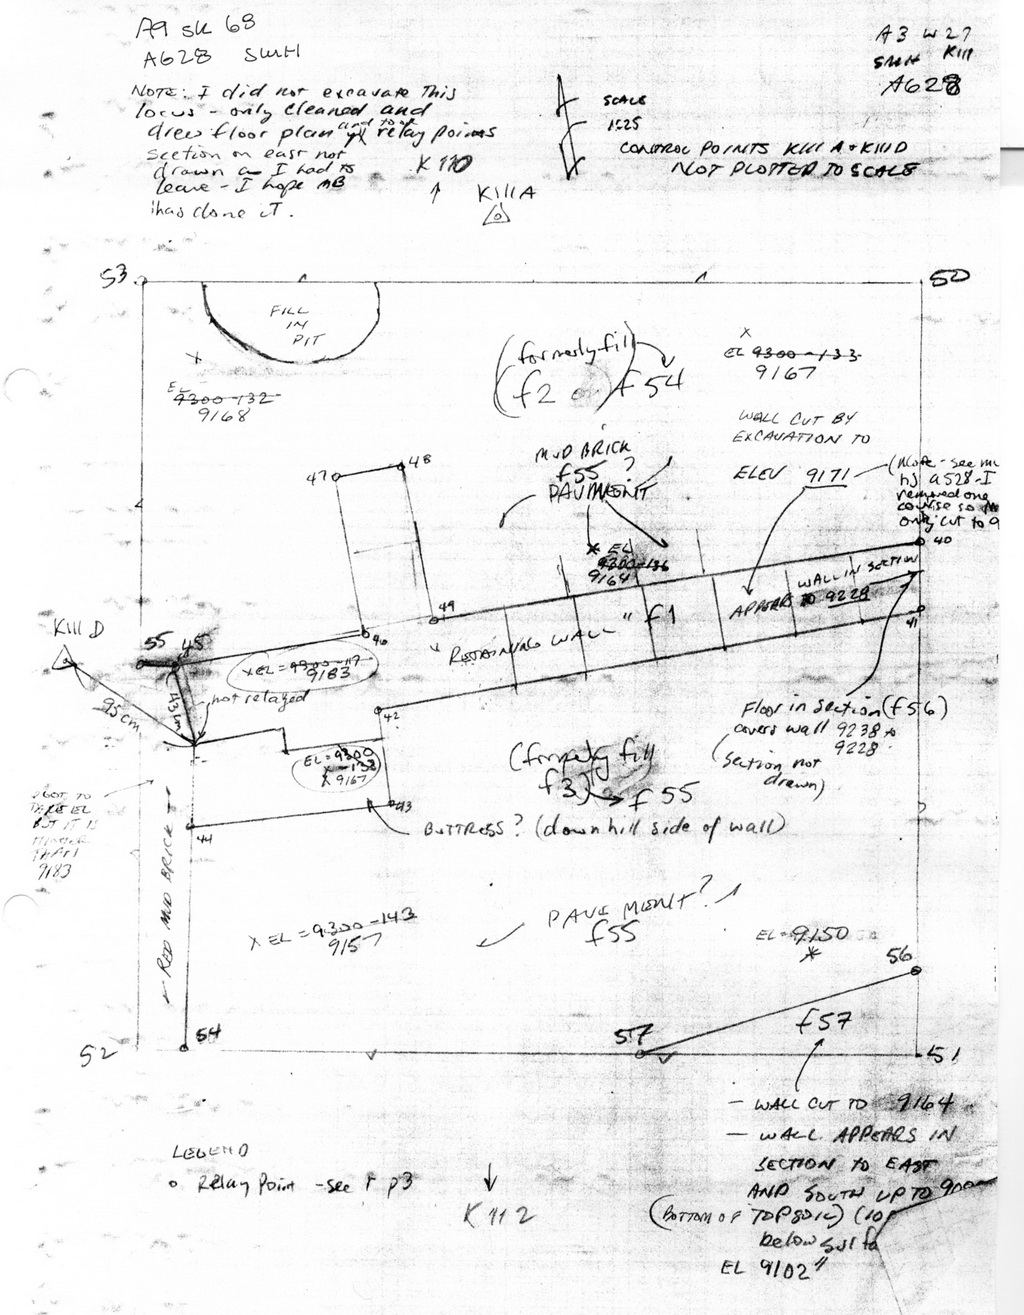 A9 SK 68
A628 SMH
NOTE: I did not excavate This
locus - only cleaned and
drew floor plan and took relay points
section on east not
drawn as I had to
leave - I hope MB
has done it.
K 110
K111A
SCALE
1:25
CONTROL POINTS K111A + K111D
NOT PLOTTED TO SCALE
A3 W27
SMH K111
A628
53
50
FILL
IN
PIT
EL
9300-132
9168
(formerly fill)
(f2) f54
EL 9300-133
9167
WALL CUT BY
EXCAVATION TO
ELEV 9171
(Note - see
a528 - I
removed one
course so
only cut to 9
MUD BRICK
f55 ?
PAVIMENT
47
48
EL
9300-136
9164
40
49
WALL IN SECTION
APPEARS TO 9228
f1
RETAINING WALL
41
K111 D
55
45
46
X EL = 9300-117
9183
not relayed
95 cm
42
Floor in section (f56)
covers wall 9238 to
9228
(Section not
drawn)
EL = 9300
-133
9167
(formerly fill
f3) f55
43
BUTTRESS? (downhill side of wall)
44
BUT IT IS
HIGHER
THAN
9183
RED MUD BRICK
PAVIMENT?
f55
X EL = 9300-143
9157
EL = 9150
56
57
f57
54
52
51
- WALL CUT TO 9164
- WALL APPEARS IN
SECTION TO EAST
AND SOUTH UP TO
(BOTTOM OF TOPSOIL) (10
below
EL 9102"
LEGEND
o Relay Point - see p3
K 112